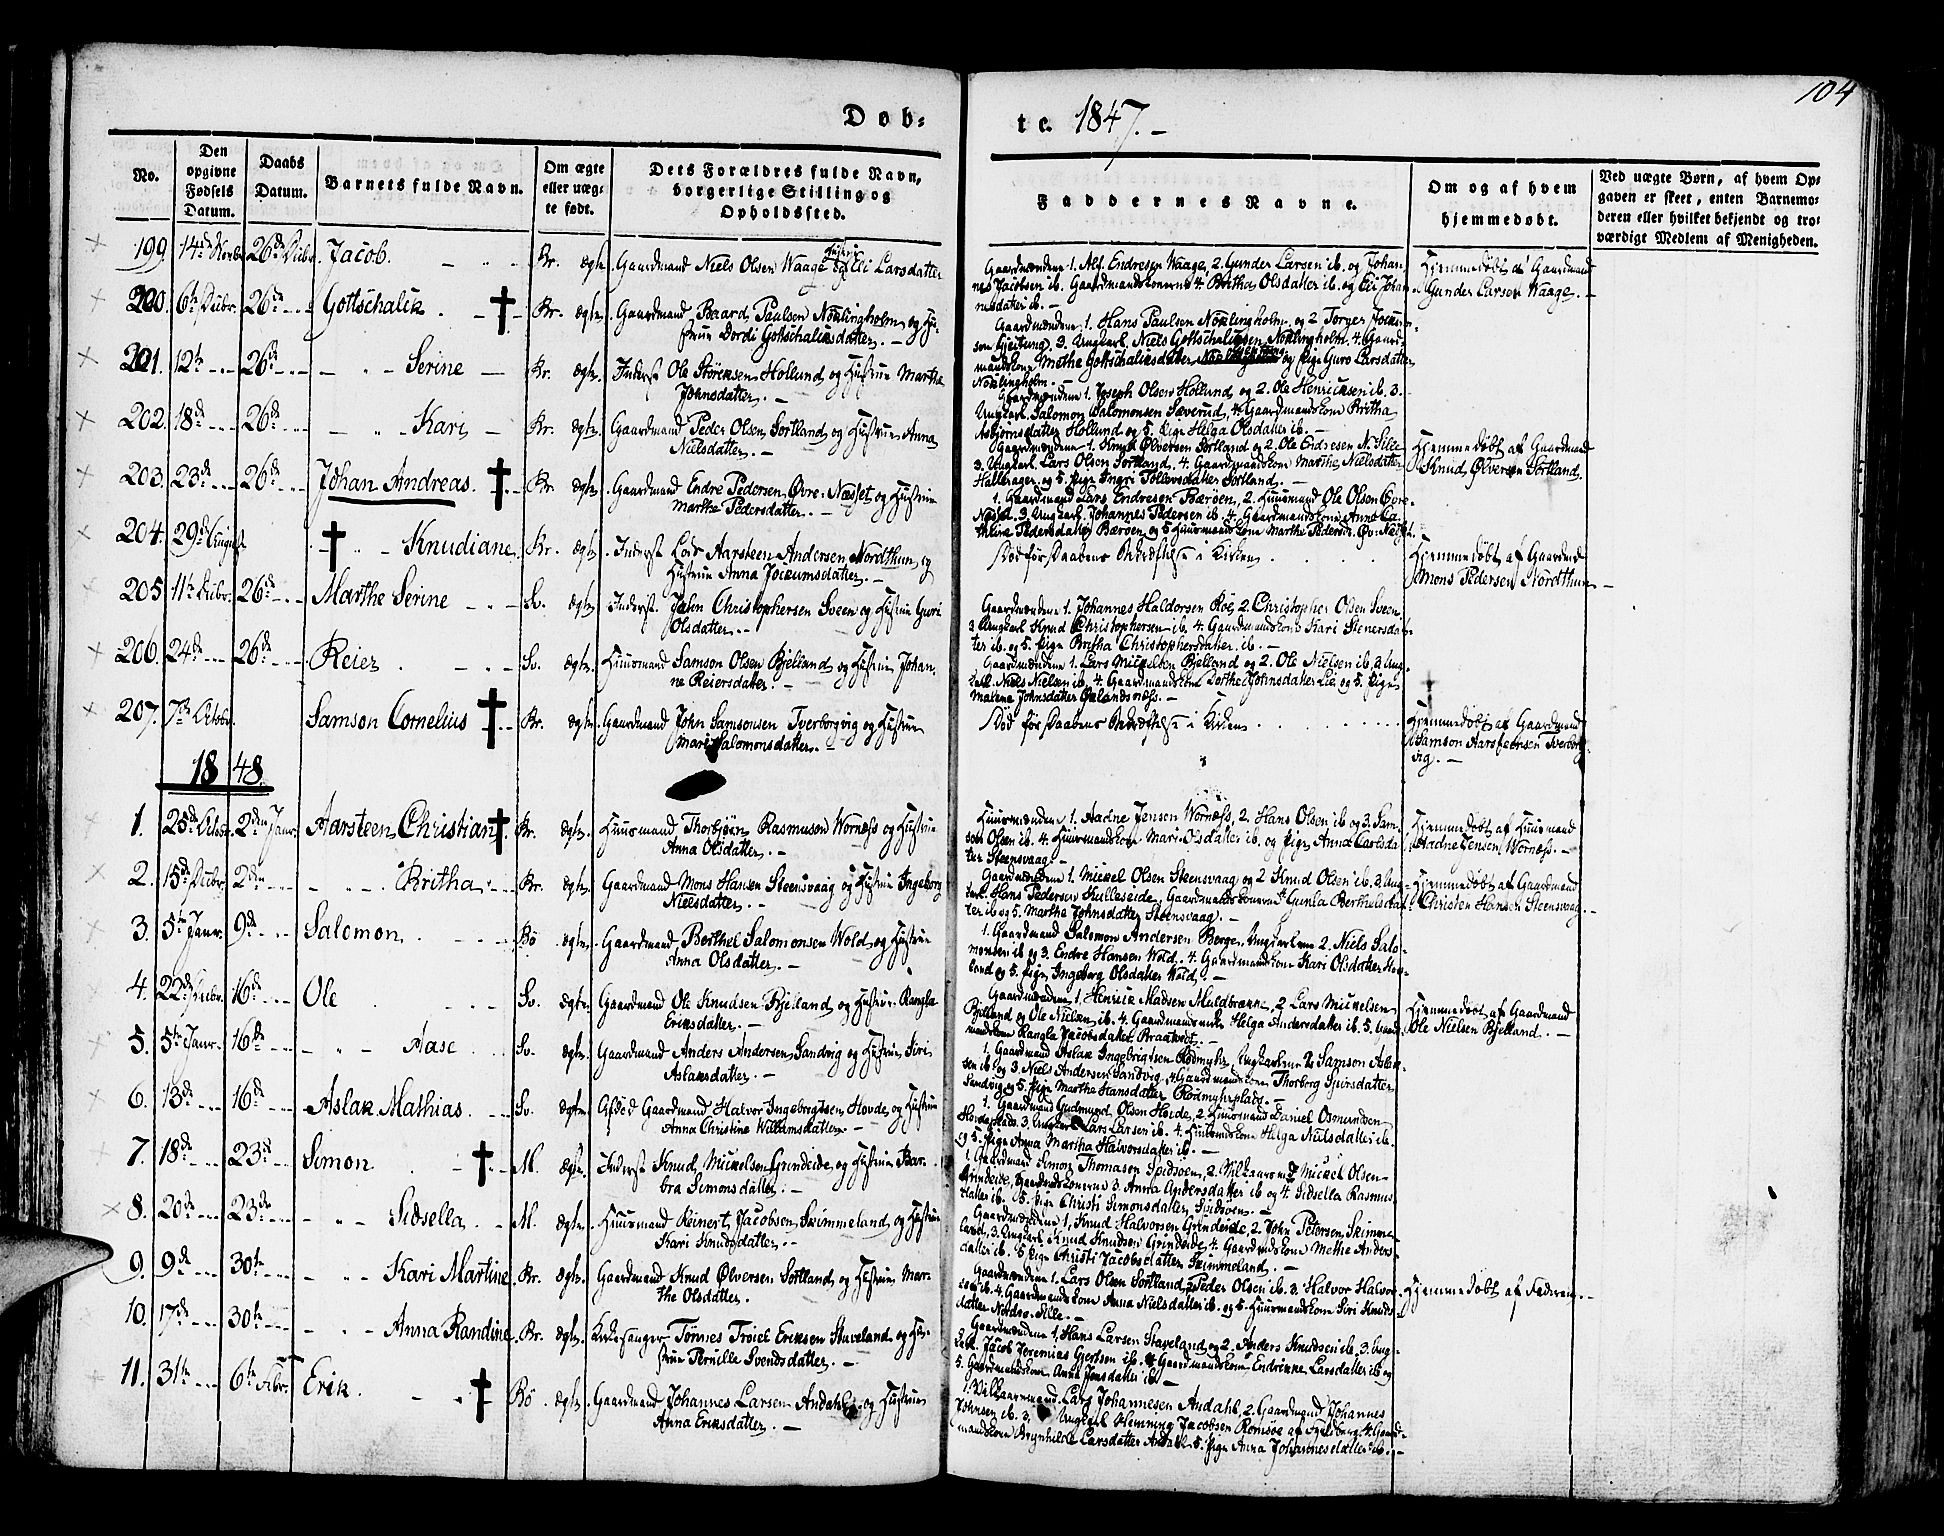 104
Døb-
te. 1847.-
No.
Den opgivne Fødsels Datum.
Daabs Datum.
Barnets fulde Navn.
Om ægte eller uæg-te født.
Dets Forældres fulde Navn, borgerlige Stilling og Opholdssted.
Faddernes Navne.
Om og af hvem hjemmedøbt.
Ved uægte Børn, af hvem Op-gaven er skeet, enten Barnemo-deren eller hvilket bekjendt og tro-værdigt Medlem af Menigheden.
199 14de Novbr 26de Decbr. Jacob. Br. Ægte. Gaardmand Niels Olsen Waage og Hustrue Eli Larsdatter
Gaardmændene 1. Alf Endresen Waage, 2. Gunder Larsen ib. og Johan-
nes Jacobsen ib. Gaardmandskonerne 4. Britha Olsdatter ib. og Eli Johan-
nesdatter ib. -
Hjemmedøbt af Gaardmand
Gunder Larsen Waage. -
200. 6te Decbr. 26de Gottschalk. Br. Ægte. Gaardmand Baard Paulsen Nøklingholm og Hu-
strue Dordi Gottschalksdatter. -
Gaardmændene 1. Hans Paulsen Nøklingholm og 2 Torger
3. Ungkarl Niels Gottschalksen Nøklingholm. 4. Gaard-
mandskone Methe Gottschalksdatter og Pige Guro Larsdatter
Nøklingholm. -
201. 12te 26de Serine Br. Ægte. Inderst Ole Størksen Hollund og Hustrue Martha
Johnsdatter. -
Gaardmændene 1. Joseph Olsen Hollund og 2. Ole Henricksen ib. 3.
Ungkarl Salomon Salomonsen Sæverud, 4. Gaardmandskone Britha
Asbjørnsdatter Hollund og 5. Pige Helga Olsdatter ib. -
202. 18de 26de Kari Br. Ægte. Gaardmand Peder Olsen Sortland og Hustrue Anna
Nielsdatter. -
Gaardmændene 1. Knud Ølversen Sortland og 2. Ole Endresen N. Sille
3. Ungkarl Lars Olsen Sortland. 4. Gaardmandskone Marthe Nielsdatter
Hallerager og 5. Pige Ingri Tollevsdatter Sortland. -
Hjemmedøbt af Gaardmand
Knud Ølversen Sortland.
203. 23de 26de Johan Andreas. Br. Ægte. Gaardmand Endre Pedersen Øvre-Næsset og Hustrue
Marthe Pedersdatter. -
1. Gaardmand Lars Endresen Bærøen, 2. Huusmand Ole Olsen Øvre-
Næsset 3. Ungkarl Johannes Pedersen ib. 4. Gaardmandskone Anne Ca-
thrine Pedersdatter Bærøen og 5 Huusmandskone Marthe Pedersd. Øv. Næsset.
204. 29de August Knudiane Br. Ægte. Inderst Aarsteen Andersen Nordthun og
Hustrue Anna Jockumsdatter. -
Død før Daabens Bekræftelse i Kirken
Hjemmedøbt af Gaardmd
Mons Pedersen Nordthun -
205 11te Decbr. 26de Marthe Serine Sv. Ægte. Inderst John Christophersen Sveen og Hustrue Guri
Olsdatter. -
Gaardmændene 1. Johannes Haldorsen Røe, 2. Christopher Olsen Sveen
3 Ungkarl Knud Christophersen ib. 4. Gaardmandskone Kari Stenersdat-
ter ib. og 5. Pige Britha Christophersdatter ib. -
206. 24de 26de Reier Sv. Ægte. Huusmand Samson Olsen Bjelland og Hustrue Johan-
ne Reiersdatter. -
Gaardmændene 1. Lars Mickelsen Bjelland og 2. Ole Nielsen ib, 3. Ung-
karl Niels Nielsen ib. 4. Gaardmandskone Dorthe Johnsdatter Lie og 5. Pige
Malene Johnsdatter
207. 7de Octobr. Samson Cornelius Br. Ægte. Gaardmand John Samsonsen Tverborgvig og Hustrue
Mari Salomonsdatter. -
Død før Daabens Bekræftelse i Kirken
Hjemmedøbt af Gaardmand
Samson Aarsteensen Tverborg-
vig. -
1848.
1. 25de Octobr. 2den Janr. Aarsteen Christian Br. Ægte. Huusmand Thorbjørn Rasmussen Wornæss og Hustrue
Anna Olsdatter. -
Huusmændene 1. Aadne Jensen Wornæss, 2. Hans Olsen ib og 3. Sam-
son Olsen ib. 4. Huusmandskone Mari Olsdatter ib. og Pige Anna Carlsdat-
ter Steensvaag. -
Hjemmedøbt af Huusmand
Aadne Jensen Wornæss. -
2. 15de Decbr. 2den Britha Br. Ægte. Gaardmand Mons Hansen Steensvaag og Hustrue Ingeborg
Nielsdatter. -
Gaardmændene 1. Mickel Olsen Steensvaag og 2 Knud Olsen ib, 3. Ung-
karl Hans Pedersen Kulleseide, Gaardmandskonerne 4. Gunla Berthelsdat-
ter ib og 5. Marthe Johnsdatter Steensvaag. -
Hjemmedøbt af Gaardmand
Christen Hansen Steensvaag. -
3. 5te Janr. 9de Salomon Bø Ægte. Gaardmand Berthel Salomonsen Wold og Hustrue
Anna Olsdatter. -
1. Gaardmand Salomon Andersen Berge, Ungkarlene 2. Niels Salo-
monsen ib og 3. Endre Hansen Wold. 4. Gaardmandskone Kari Olsdatter
og 5. Pige Ingeborg Olsdatter Wold. -
4. 22de Decbr. 16de Ole Sv. Ægte. Gaardmand Ole Knudsen Bjelland og Hustrue Rangla
Eriksdatter. -
Gaardmændene 1. Henrick Madsen 2 Lars Mickelsen
Bjelland og Ole Nielsen ib. 4. Gaardmandsenke Helga Andersdatter ib. 5. Gaard-
mandskone Rangla Jacobsdatter
Hjemmedøbt af Gaardmand
Ole Nielsen Bjelland. -
5. 5te Janr. 16de Aase Sv. Ægte. Gaardmand Anders Andersen Sandvig og Hustrue Siri
Aslaksdatter. -
1. Gaardmand Aslak Ingebrigtsen Rødmyhr, Ungkarlene 2 Samson Aslak-
sen ib og 3. Niels Andersen Sandvig. 4 Gaardmandskone Thorborg Sjursdatter
Sandvig og 5. Pige Marthe Hansdatter Rødmyhrplads. -
6. 13de 16de Aslak Mathias. Sv. Ægte. Afdød Gaardmand Halvor Ingebrigtsen Hovde og Hustrue
Anna Christine Willumsdatter. -
1. Gaardmand Gudmund Olsen Hovde, 2. Huusmand Daniel Osmundsen
3. Ungkarl Lars Larsen ib. 4. Huusmandskone Helga Nielsdatter ib.
og 5. Pige Anna Martha Halvorsdatter ib. -
7. 18de 23de Simon M. Ægte. Inderst Knud Mickelsen Grindeide og Hustrue Bar-
bra Simonsdatter. -
1 Gaardmand Simon Thomasen Spidsøen, 2. Vilkaarsmd Mickel Olsen
Grindeide, Gaardmandskonerne 3 Anna Andersdatter ib og 4 Sidsella Rasmus-
datter ib. 5. Pige Christi Simonsdatter Spidsøen. -
8. 20de 23de Sidsella. M. Ægte. Huusmand Reinert Jacobsen Skimmeland og Hustrue
Kari Knudsdatter. -
Gaardmændene 1. Knud Halvorsen Grindeide, 2. John Petersen Skimme-
land, 3. Ungkarl Knud Knudsen Grindeide 4. Gaardmandskone Methe Anders-
datter ib. 5. Pige Christi Jacobsdatter Skimmeland. -
9. 9de 30te Kari Martine Br. Ægte. Gaardmand Knud Ølversen Sortland og Hustrue Mar-
the Olsdatter.
Gaardmændene 1. Lars Olsen Sortland, 2 Peder Olsen ib. 3. Halvor Halvor-
sen ib. 4. Gaardmandskone Anna Nielsdatter ib. og 5. Huusmandskone Siri Knuds-
datter Nordre Sille. -
Hjemmedøbt af Faderen. -
10. 17de 30te Anna Randine Br. Ægte. Kirkesanger Tønnes Troiel Eriksen Staveland og Hu-
strue Pernille Svendsdatter. -
Gaardmændene 1. Hans Larsen Staveland og 2. Anders Knudsen ib. 3. Ung-
karl Jacob Jeremias Gjertsen ib. 4 Gaardmandskone Endrikke Larsdatter ib og
5. Gaardmandskone Anna Jensdatter ib. -
11. 31te 6te Febr. Erik. Bø Ægte. Gaardmand Johannes Larsen Andahl og Hustrue
Anna Eriksdatter. -
1. Vilkaarsmand Lars Johannesen Andahl, 2. Gaardmand Johannes
ib. 3. Ungkarl Henning Jacobsen Romsøe af Fjeldberg. 4. Gaard-
mandskone Brynhilde Larsdatter Andahl 5. Pige Anna Johannesdatter ib. -